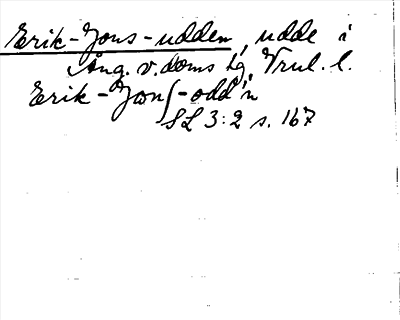 Erik-Jons-udden, udde i
Ång. v. doms hg, Vrul. l.
Erik-Jonſ-odd'n
SL 3:2 s. 167